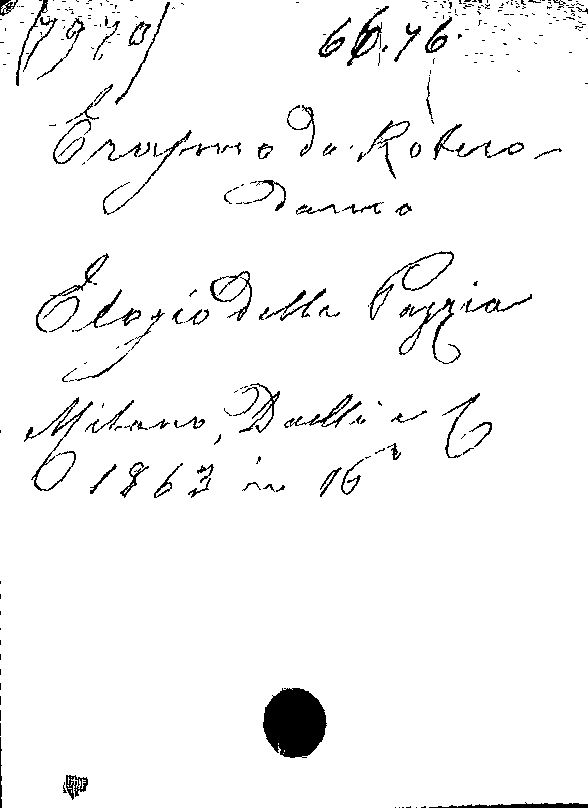 (7970) 66.76.
Erasmo da Rotero-
damo
Elogio della Pazzia
Milano, Daelli e C
1863 in 16°